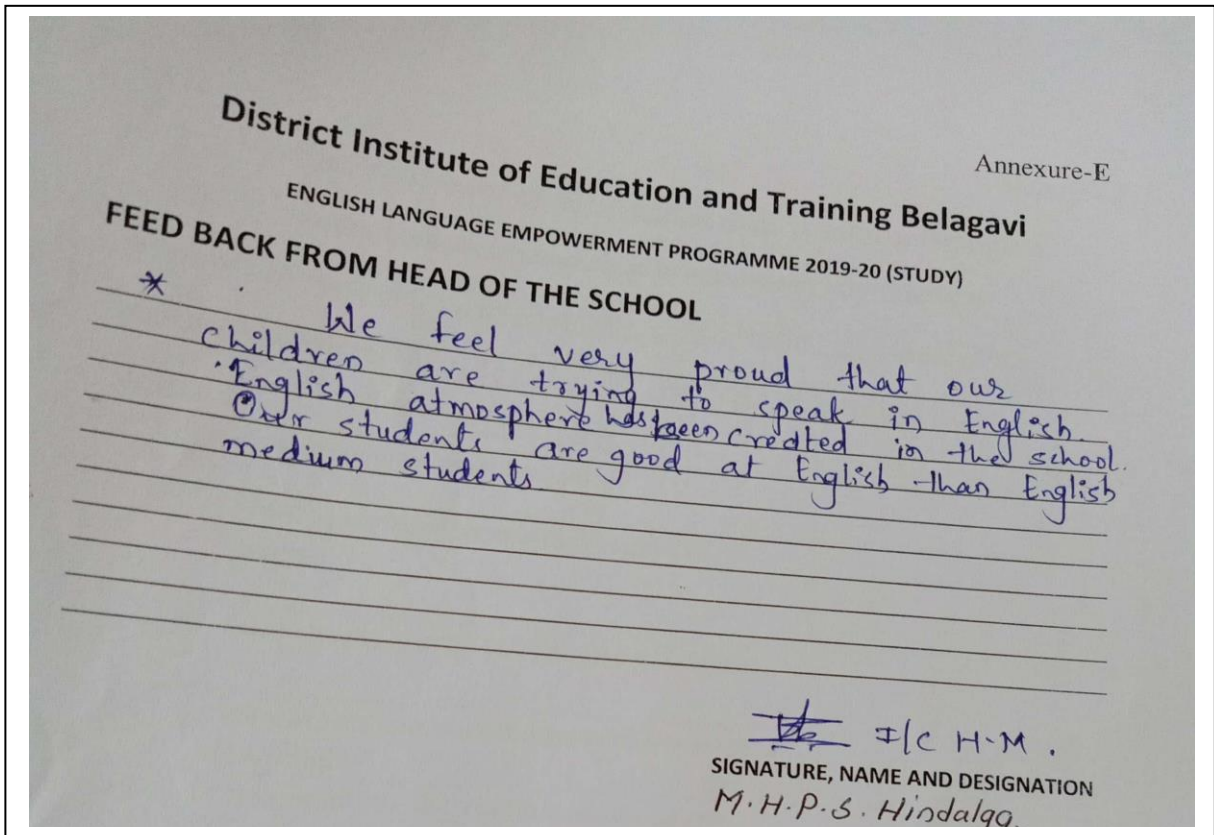 Annexure-E
District Institute of Education and Training Belagavi
ENGLISH LANGUAGE EMPOWERMENT PROGRAMME 2019-20 (STUDY)
FEED BACK FROM HEAD OF THE SCHOOL
* We feel very proud that our
children are trying to speak in English.
English atmosphere has been created in the school.
Our students are good at English than English
medium students
I/C H-M.
SIGNATURE, NAME AND DESIGNATION
M.H.P.S. Hindalga.